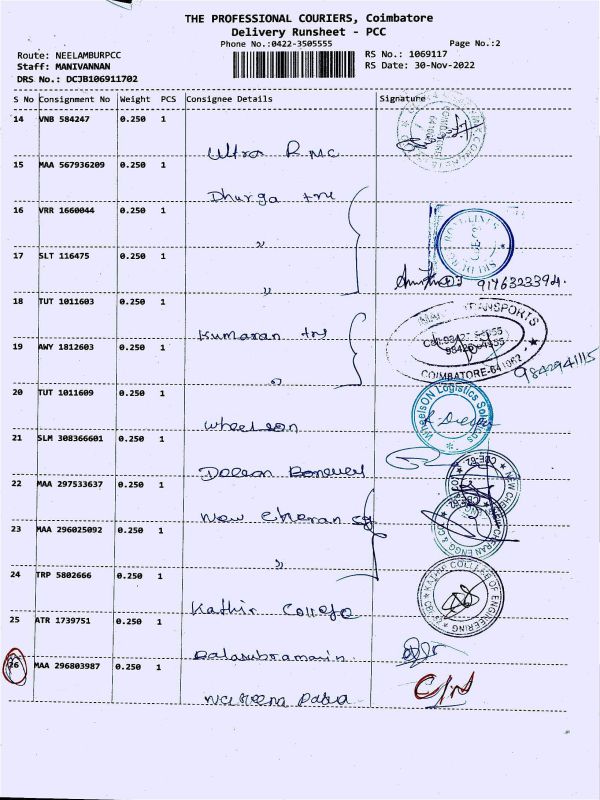 THE PROFESSIONAL COURIERS, Coimbatore
Delivery Runsheet - PCC
Phone No.:0422-3505555
Page No.:2
Route: NEELAMBURPCC
RS No.: 1069117
Staff: MANIVANNAN
RS Date: 30-Nov-2022
DRS No.: DCJB106911702
S No Consignment No Weight PCS Consignee Details Signature
14 VNB 584247 0.250 1
Ultra R MC
15 MAA 567936209 0.250 1
Dhurga tre
16 VRR 1660044 0.250 1
"
17 SLT 116475 0.250 1
"
9176323394.
18 TUT 1011603 0.250 1
Kumaran tre
TRANSPORTS
COIMBATORE-641062
9842941115
19 AWY 1812603 0.250 1
"
20 TUT 1011609 0.250 1
wheelson
WheelsON Logistics Solutions
21 SLM 308366601 0.250 1
22 MAA 297533637 0.250 1
New Cheran
NEW CHERAN ENGG & CO
23 MAA 296025092 0.250 1
"
24 TRP 5802666 0.250 1
Kathir College
KATHIR COLLEGE OF ENGINEERING
25 ATR 1739751 0.250 1
Balasubramanin
26 MAA 296803987 0.250 1